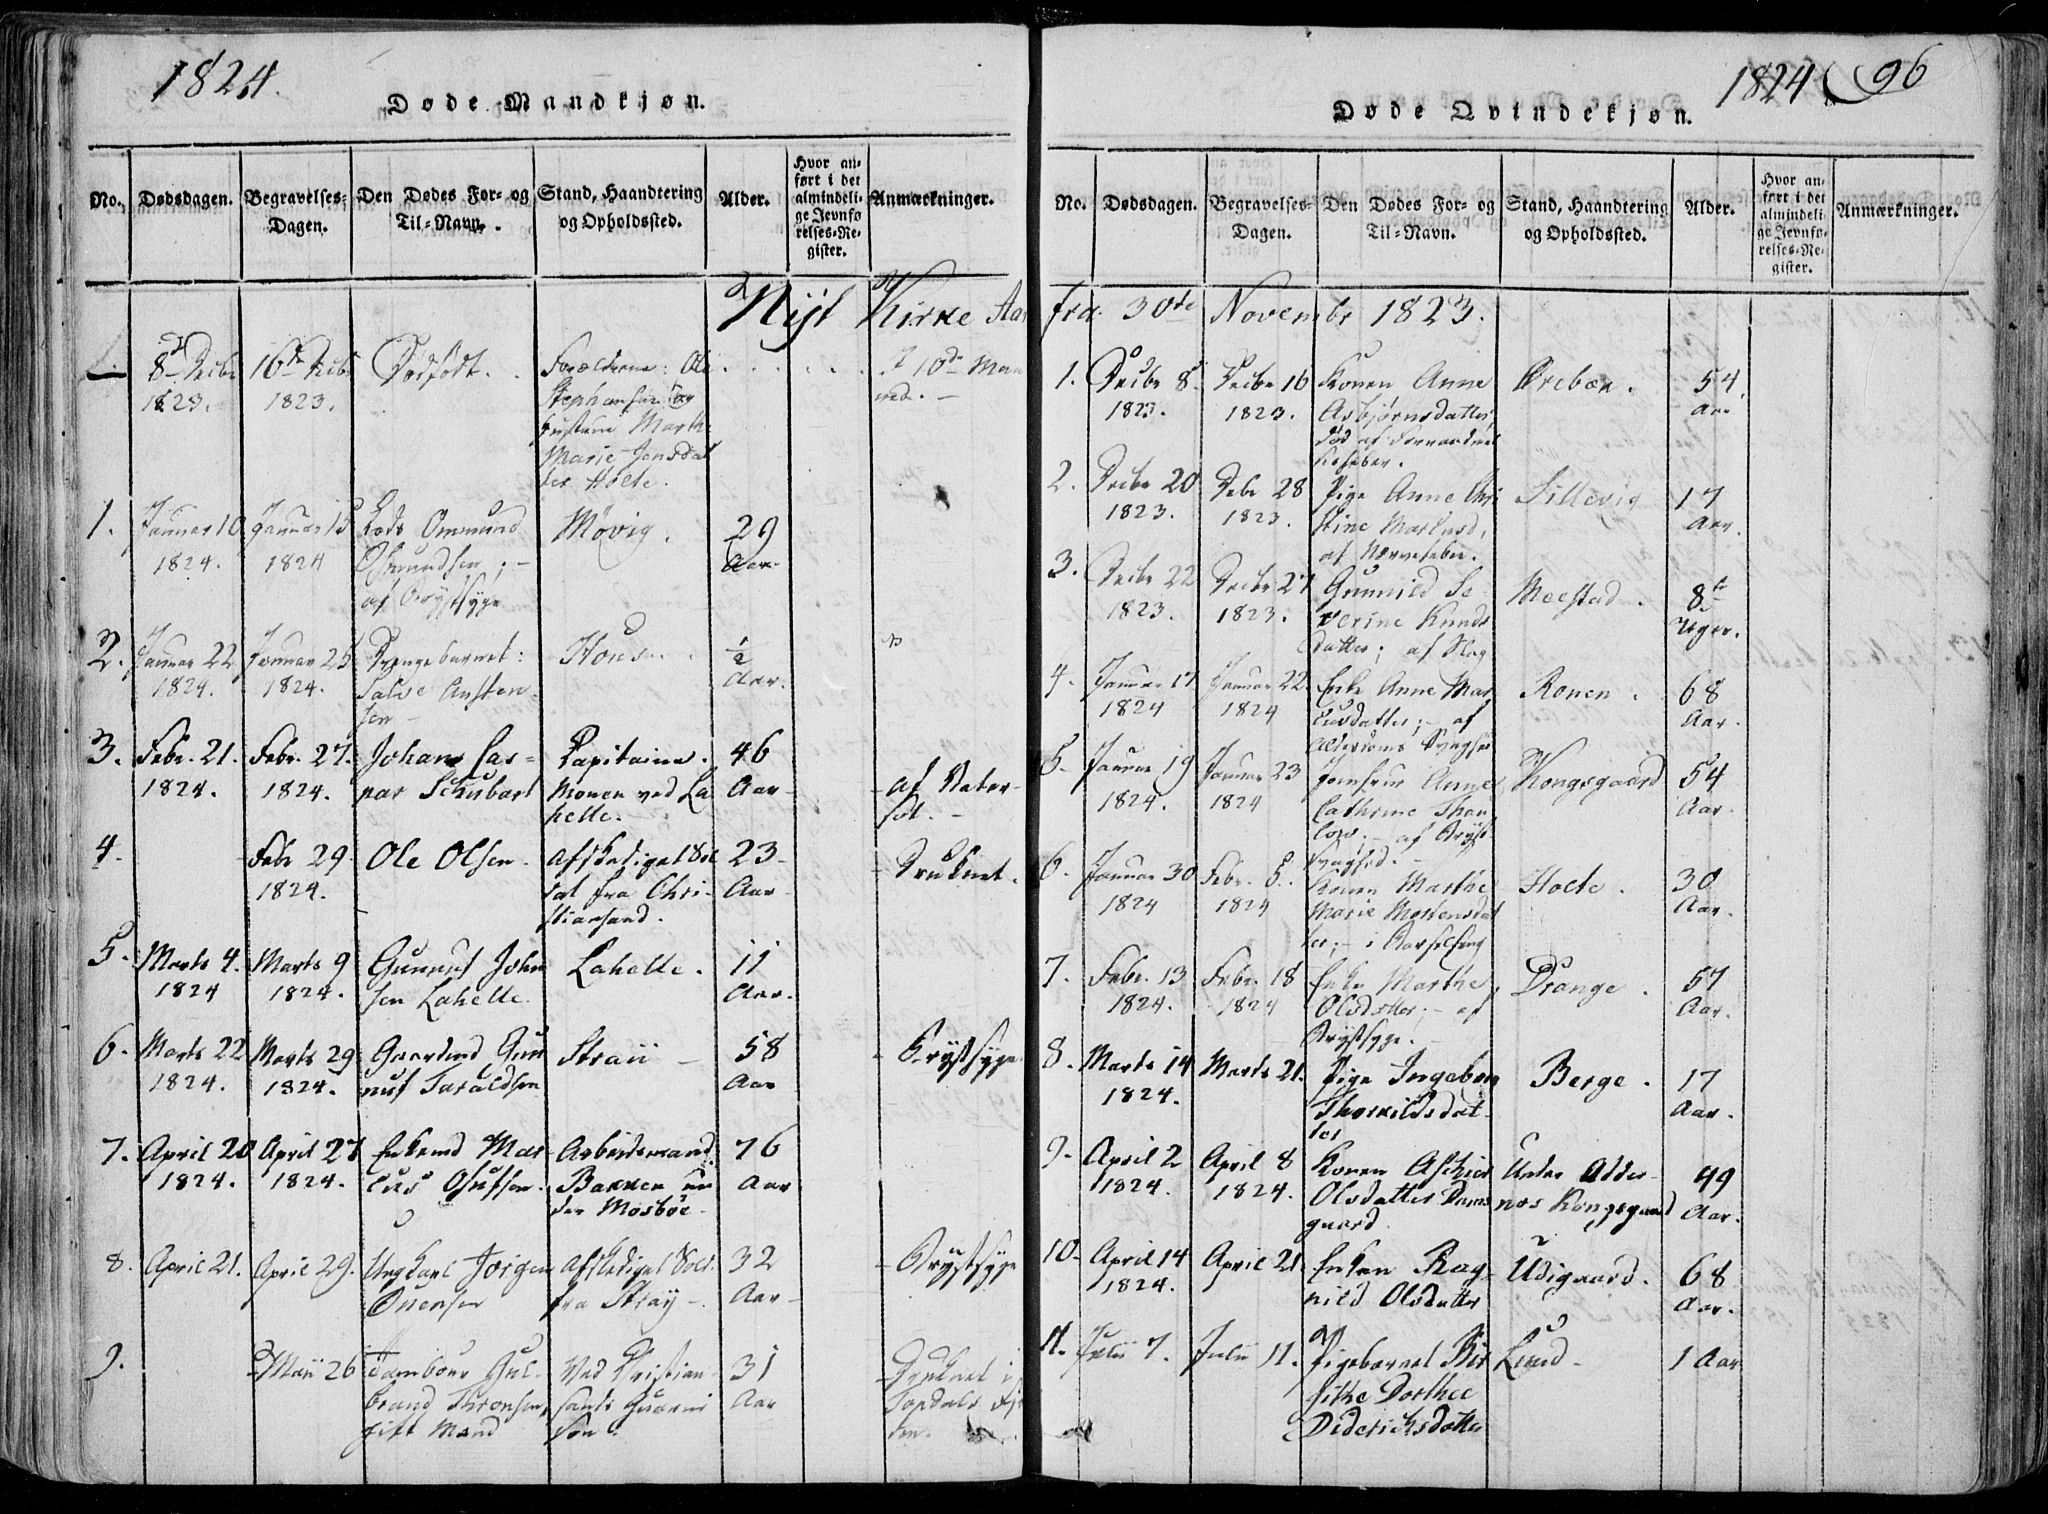 1824.
Døde Mandkjøn.
No.
Dødsdagen.
Begravelses-
Dagen.
Den Dødes For- og
Til-Navn.
Stand, Haandtering
og Opholdssted.
Alder.
Hvor an-
ført i det
almindeli-
ge Jevnfø
relses-Re-
gister.
Anmærkninger.
Kirke Aar
8de Decbr
1823.
16de Decbr
1823.
Dødfødt.
Forældrene: Ole
Stephensen og
Hustrue Marthe
Marie Jensdat
ter Holte.
10de Maa
ned.
1.
Januar 10
1824.
Januar 15
1824
Lods Ommund
Osmundsen; -
af Brystsyge
Møvig.
29
Aar.
2.
Januar 22
1824.
Januar 25
1824.
Drengebarnet:
Salve Austen-
sen
Hous.
1/2
Aar.
3.
Febr. 21.
1824.
Febr. 27.
1824.
Johan Cas=
par Schubart
Capitaine.
Monen ved La
helle.
46
Aar
af Vater-
sot.
4.
Febr 29.
1824.
Ole Olsen
Afskediget Sol
dat fra Chri-
stiansand.
23
Aar
Druknet.
5.
Marts 4.
1824
Marts 9
1824.
Gunnuf John
sen Lahelle.
Lahelle.
11
Aar.
6.
Marts 22
1824.
Marts 29
1824.
Gaardmd Gun
nuf Taraldsen
Straii
58
Aar
Brystsyge.
7.
April 20
1824.
April 27
1824.
Enkemd Mar-
cus Osufsen.
Arbeidsmand.
Bakken un
der Mosbøe
76
Aar
8.
April 21.
April 29.
Ungkarl Jørgen
Onensen
Afskediget Sold.
fra Stray
32
Aar
Brystsyge
9.
Maii 26
Tambour Gul-
brand Thronsen,
gift Mand
Ved Christian-
sands Guarni
son.
31
Aar
Druknet i
Topdals Fjor
den.
1824
96
Døde Qvindekjøn.
No.
Dødsdagen.
Begravelses-
Dagen.
Den Dødes For- og
Til-Navn.
Stand, Haandtering
og Opholdssted.
Alder.
Hvor an-
ført i det
almindeli
ge Jevnfø-
relses-Re-
gister.
Anmærkninger.
fra 30de Novembr 1823.
1.
Decbr 8.
1823.
Decbr 16
1823.
Konen Anne
Asbjørnsdatter,
død af Forraadnel
sesfeber.
Drebæn.
54.
Aar
2.
Decbr 20
1823.
Debr 28
1823.
Pige Anne Chri
stine Marcusd.
af Nervefeber.
Sillevig
17
Aar.
3.
Decbr 22
1823.
Decbr 27
1823.
Gunnild Se-
verine Knuds
datter; af Slag
Moestad.
8te
Uger.
4.
Januar 17
1824
Januar 22
1824
Enke Anne Mar
cusdatter; - af
Alderdoms Svaghed
Ronen.
68
Aar.
5.
Januar 19
1824.
Januar 23
1824
Jomfrue Anne
Cathrine Thau
low; - af Bryst
Svaghed.
Kongsgaard
54
Aar.
6.
Januar 30
1824
Febr. 5.
1824
Konen Marthe
Marie Mortensdat
ter; - i Barselseng
Holte.
30
Aar.
7.
Febr. 13
1824.
Febr. 18
1824
Enke Marthe
Olsdatter; - af
Brystsyge.
Drange.
57
Aar.
8.
Marts 14
1824.
Marts 21.
Pige Ingeborg
Thorvildsdat-
ter
Berge.
17
Aar.
9.
April 2
1824.
April 8
1824.
Konen Aschier
Olsdatter Dams
gaard.
Under Odder-
næs Kongsgaard
49
Aar.
10.
April 14
1824.
April 21
Enken Rag-
nild Olsdatter
Udigaard.
68
Aar.
11.
Julii 7.
Julii 11.
Pigebarnet Bir
gitte Dorthee
Dideriksdatter
Lund
1 Aar